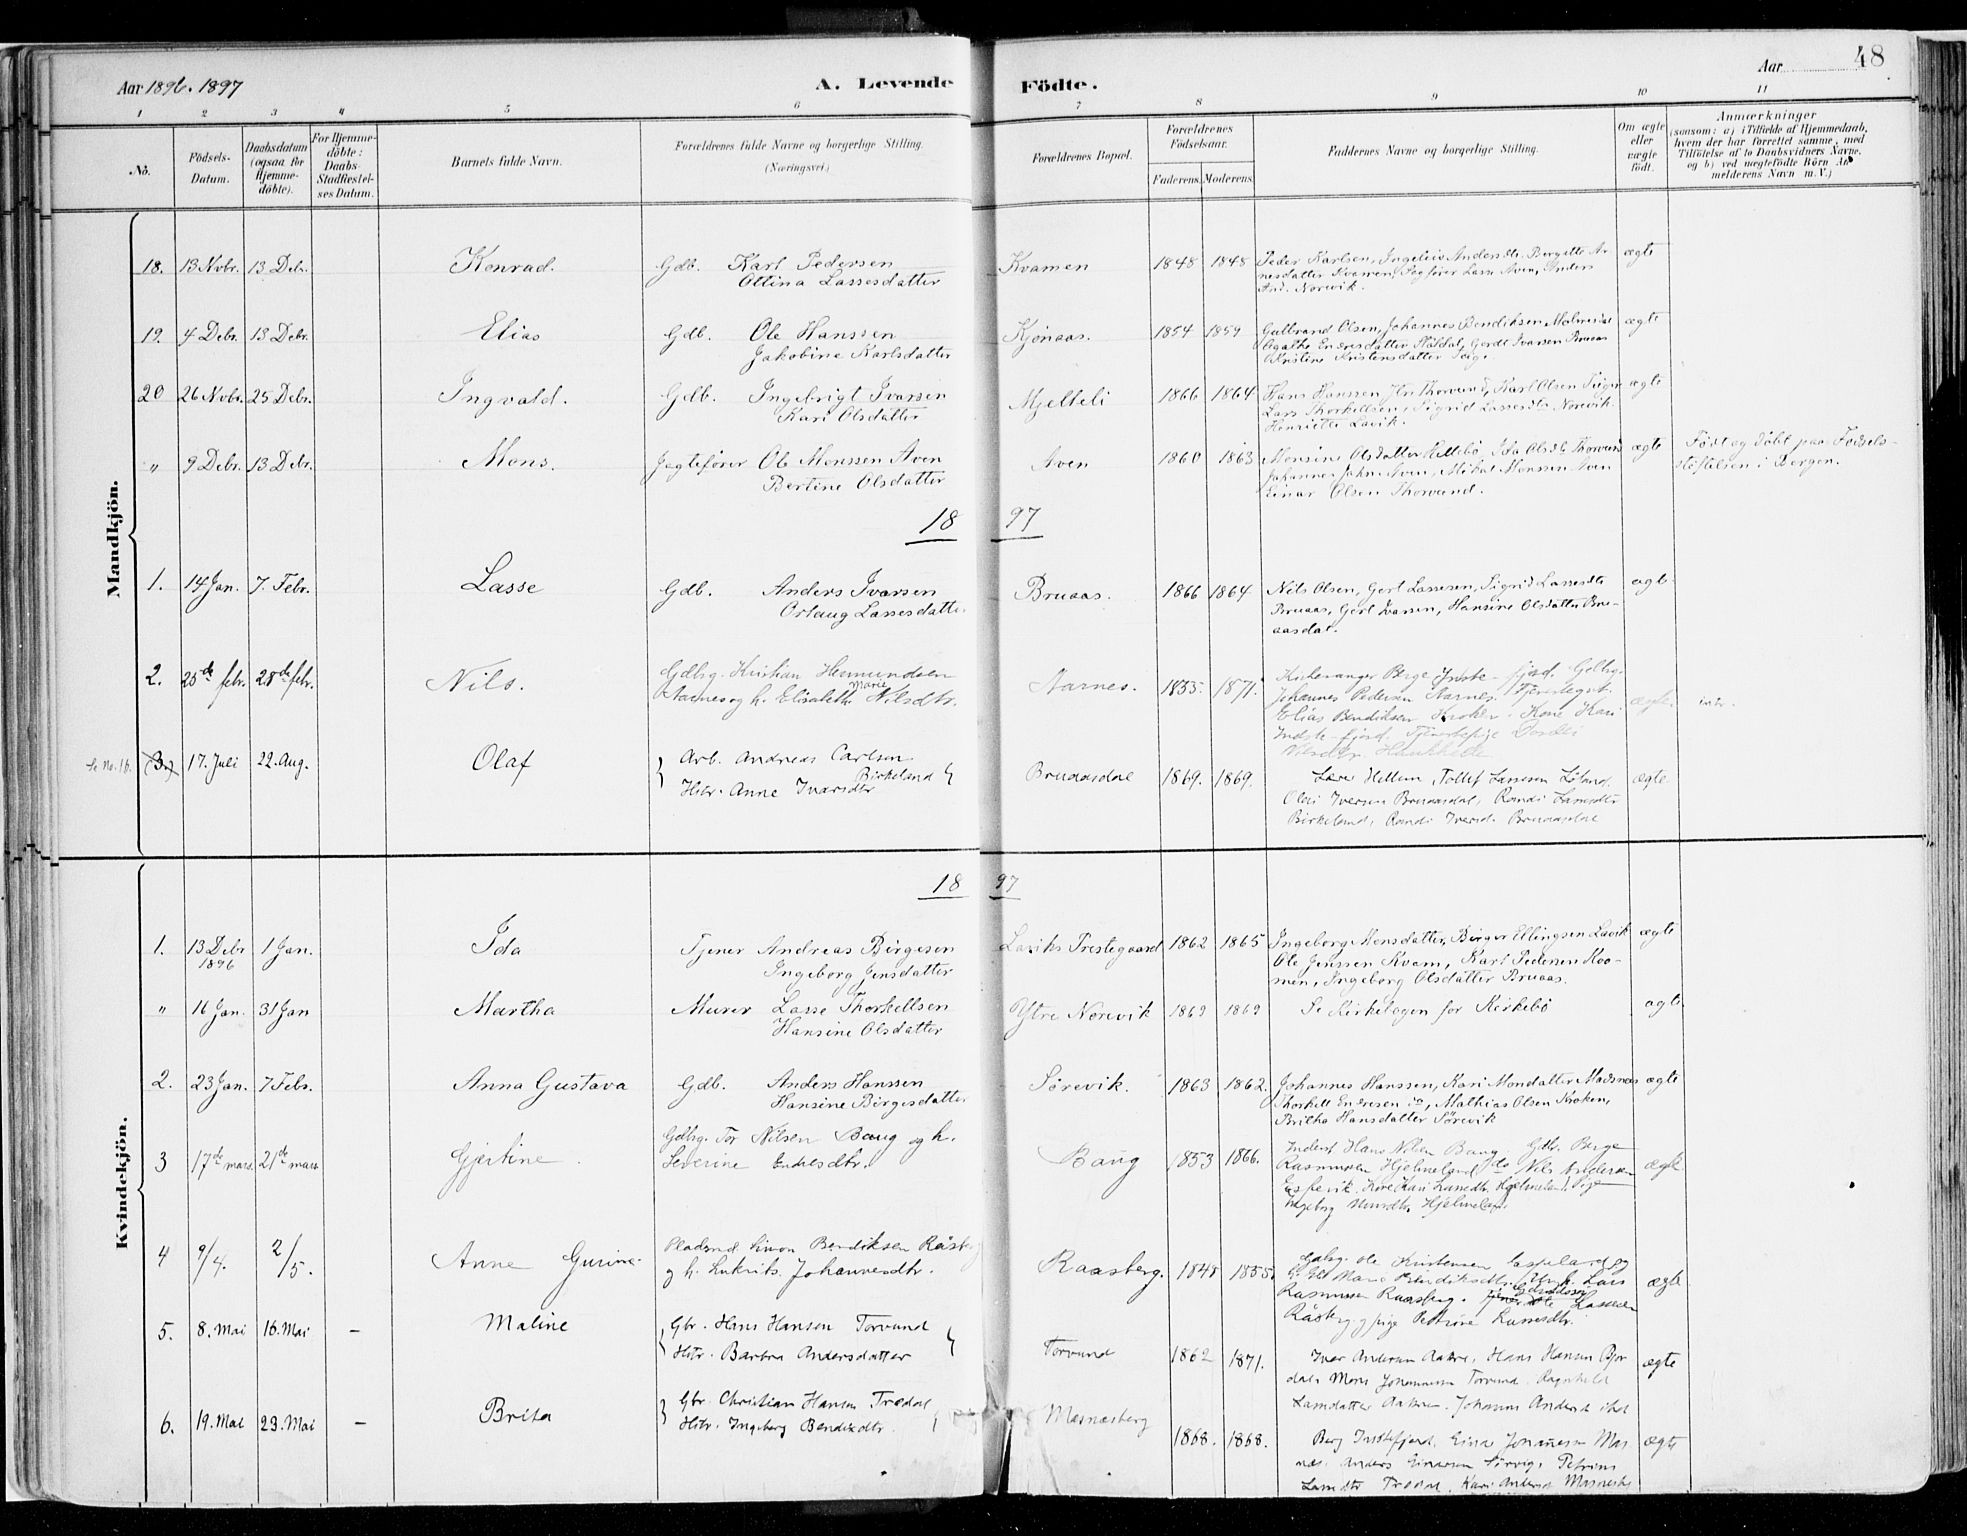 48
Aar 1896. 1897
A. Levende Födte.
Aar
1 2 3 4 5 6 7 8 9 10 11
No.
Födsels-Datum.
Daabsdatum (ogsaa for Hjemme-döbte).
For Hjemme-döbte: Daabs-Stadfæstel-ses Datum.
Barnets fulde Navn.
Forældrenes fulde Navne og borgerlige Stilling.
(Næringsvei.)
Forældrenes Bopæl.
Forældrenes Födselsaar.
Faderens. Moderens.
Faddernes Navne og borgerlige Stilling.
Om ægte eller uægte födt.
Anmærkninger
(saasom: a) i Tilfælde af Hjemmedaab,
hvem der har forrettet samme, med
Tilföielse af to Daabsvidners Navne,
og b) ved uægtefödte Börn An-
melderens Navn m. V.)
Mandkjön.
18. 13 Novbr. 13 Debr. Konrad. Gdb. Karl Pedersen Kvamen 1848 1848 Peder Karlsen, Ingeleiv Andersdtr. Bergitte Ar- ægte
Ottina Lassesdatter nesdatter Kvamen, Lasse Aven, Anders
And. Norevik.
19. 4 Debr. 13 Debr. Elias Gdb. Ole Hanssen Kjönaas. 1854 1859 Gulbrand Olsen, Johannes Bendiksen ægte
Jakobine Karlsdatter Agathe Endresdatter Gerdt Ivarsen Bruaas
Kristine Kristensdatter
20 26 Novbr. 25 Debr. Ingvald. Gdb. Ingebrigt Ivarsen Mjelteli 1866 1864 Hans Hanssen Thorvund, Karl Olsen ægte
Kari Olsdatter Lars Thorkellsen, Sigrid Lassesdtr. Norevik.
Henriette Lavik.
" 9 Debr. 13 Debr. Mons. Jagtefører Ole Monssen Aven Aven 1860 1863 Monsine Olsdatter Ida Olsdtr. Thorvund ægte Födt og döbt paa Födsels-
Bertine Olsdatter Johannes Aven, Mikal Monssen Aven stiftelsen i Bergen.
Einar Olsen Thorvund.
18 97
1. 14 Jan. 7. Febr. Lasse Gdb. Anders Ivarsen Bruaas. 1866 1864 Nils Olsen, Gert Lassesen, Sigrid Lassesdtr ægte
Orlaug Lassesdatter Bruaas, Gert Ivarsen, Hansine Olsdatter Bru-
aasdal.
2. 25de febr. 28de febr. Nils. Gdbrg. Kristian Hermundsen Aarnes. 1855. 1871. Kirkesanger Berge Inste-fjord. Gdbrg. ægte
Aarnes og h. Elisabeth Marie Nilsdtr. Johannes Pedersen Aarnes.
Elias Bendiksen Kroken. Kone Kari
Indste-fjord. Tjenestepige Dordei
Nilsdtr.
Se No. 16. (3.) 17. Juli 22. Aug. Olaf Arb. Andreas Carlsen Bruaasdal 1869. 1869. Hellem, Tollef Lassesen ægte
Birkeland
Hstr. Anne Ivarsdtr Iversen Bruaasdal, Randi
Birkeland, Randi Iversd. Bruaasdal
Kvindekjön.
18 97
1. 13 Debr 1896 1 Jan. Ida Tjener Andreas Birgesen Laviks Prestegaard 1862 1865 Ingeborg Monsdatter, Birger Ellingsen Lavik ægte
Ingeborg Jensdatter Ole Jenssen Kvam, Karl Pedersen Kva-
men, Ingeborg Olsdatter Bruaas.
" 16 Jan. 31 Jan Martha Murer Lasse Thorkellsen Ytre Norevik 1869 1869 Se Kirkebogen for Kirkebö ægte
Hansine Olsdatter
2. 23 Jan. 7 Febr. Anna Gustava Gdb. Anders Hanssen Sörevik. 1863 1862. Johannes Hanssen, Kari Monsdatter Masnes ægte
Hansine Birgesdatter Thorkell Endresen do, Mathias Olsen Kroken,
Britha Hansdatter Sörevik
3 17de mars. 21de mars Gjertine. Gdbrg. Tor Nilsen Baug og h. Baug 1853 1866. Inderst Hans Nilsen Baug Gdbr. Berge ægte
Severine Endresdtr. Rasmussen Hjelmeland do Nils Andersen
Kone Kari Hjelmeland. Pige
Ingeborg Hjelmeland.
4 9/4. 2/5. Anne Gurine Pladsmd. Simon Bendiksen Råsberg Raasberg. 1848 1855. Gdbrg. Ole Kristensen ægte
og h. Johannesdtr. Lars
Rasmussen Raasberg. Lassesen
Råsberg, og pige Petrine Lassesdtr.
5. 8. Mai 16. Mai - Maline Gbr. Hans Hansen Torvund Torvund 1862 1871. Ivar Andersen Hans Hansen ægte
Hstr. Barbra Andersdatter Mons Johannessen Torvund. Ragnhild
6. 19. Mai 23. Mai - Brita Gbr. Christian Hansen Tredal Masnæsberg 1868. 1868. Berg Instefjord, Einar Johannessen Mas- ægte
Hstr. Ingeborg Bendiksdtr. næs. Anders Einarsen Sörvig, Petrine
Tredal, Kari Andersd. Masnesbg